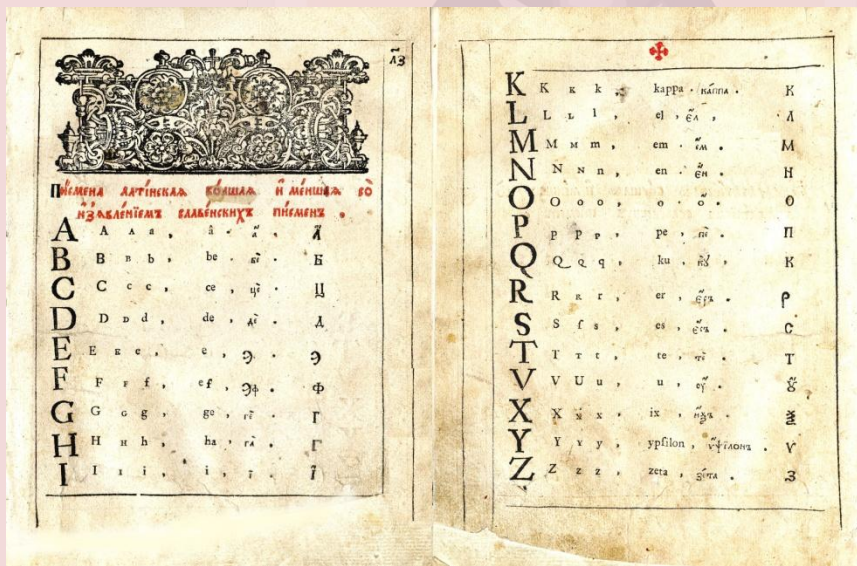 л҃з
Пи́смена лати́нская бо́лшая и҆ ме́ншая со
и҆з̾ѧвле́нїемъ славе́нскихъ пи́сменъ .
A A ᴀ a , a . а҆ . А҆
B B ʙ b , be . бѐ . Б
C C c c , ce , цѐ . Ц
D D ᴅ d , de , дѐ . Д
E E ᴇ e , e , Э . Э
F F ꜰ f , ef , Эф . Ф
G G ɢ g , ge , гѐ . Г
H H ʜ h , ha , га̀ . Г
I I ɪ i , i , і҆ . І҆
K K ᴋ k , kappa . ка́ппа . К
L L ʟ l , el , є҆́л , Л
M M ᴍ m , em . є҆́м . М
N N ɴ n , en . є҆́н . Н
O O o o , o . о҆̀ . О
P P p p , pe , пѐ . П
Q Q q q , ku , кꙋ̀ . К
R R ʀ r , er , є҆́ръ . Р
S S ſ s , es , є҆́съ . С
T T ᴛ t , te , тѐ . Т
V V U u , u , оу҆̀ . Ꙋ҆
X X x x , ix , и҆́ѯъ . Ѯ
Y Y ʏ y , ypſilon , ѵ҆ѱїлонъ . Ѵ
Z Z z z , zeta , зи́та . З